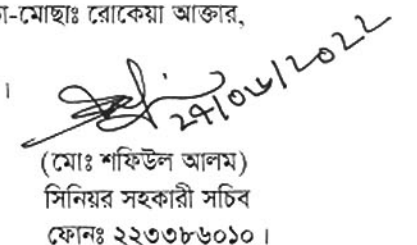 া-মোছাঃ রোকেয়া আক্তার,
।
২৭/০৬/২০২২
(মোঃ শফিউল আলম)
সিনিয়র সহকারী সচিব
ফোনঃ ২২৩৩৮৬০১০।